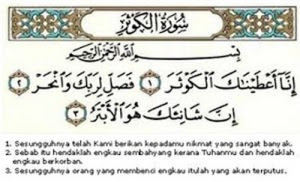 سُورَةُ الكَوْثَر
بِسْمِ اللَّهِ الرَّحْمَٰنِ الرَّحِيمِ
إِنَّا أَعْطَيْنَاكَ الْكَوْثَرَ ١ فَصَلِّ لِرَبِّكَ وَانْحَرْ ٢
إِنَّ شَانِئَكَ هُوَ الْأَبْتَرُ ٣
1. Sesungguhnya telah Kami berikan kepadamu nikmat yang sangat banyak.
2. Sebab itu hendaklah engkau sembahyang kerana Tuhanmu dan hendaklah
engkau berkorban.
3. Sesungguhnya orang yang membenci engkau itulah yang akan terputus.